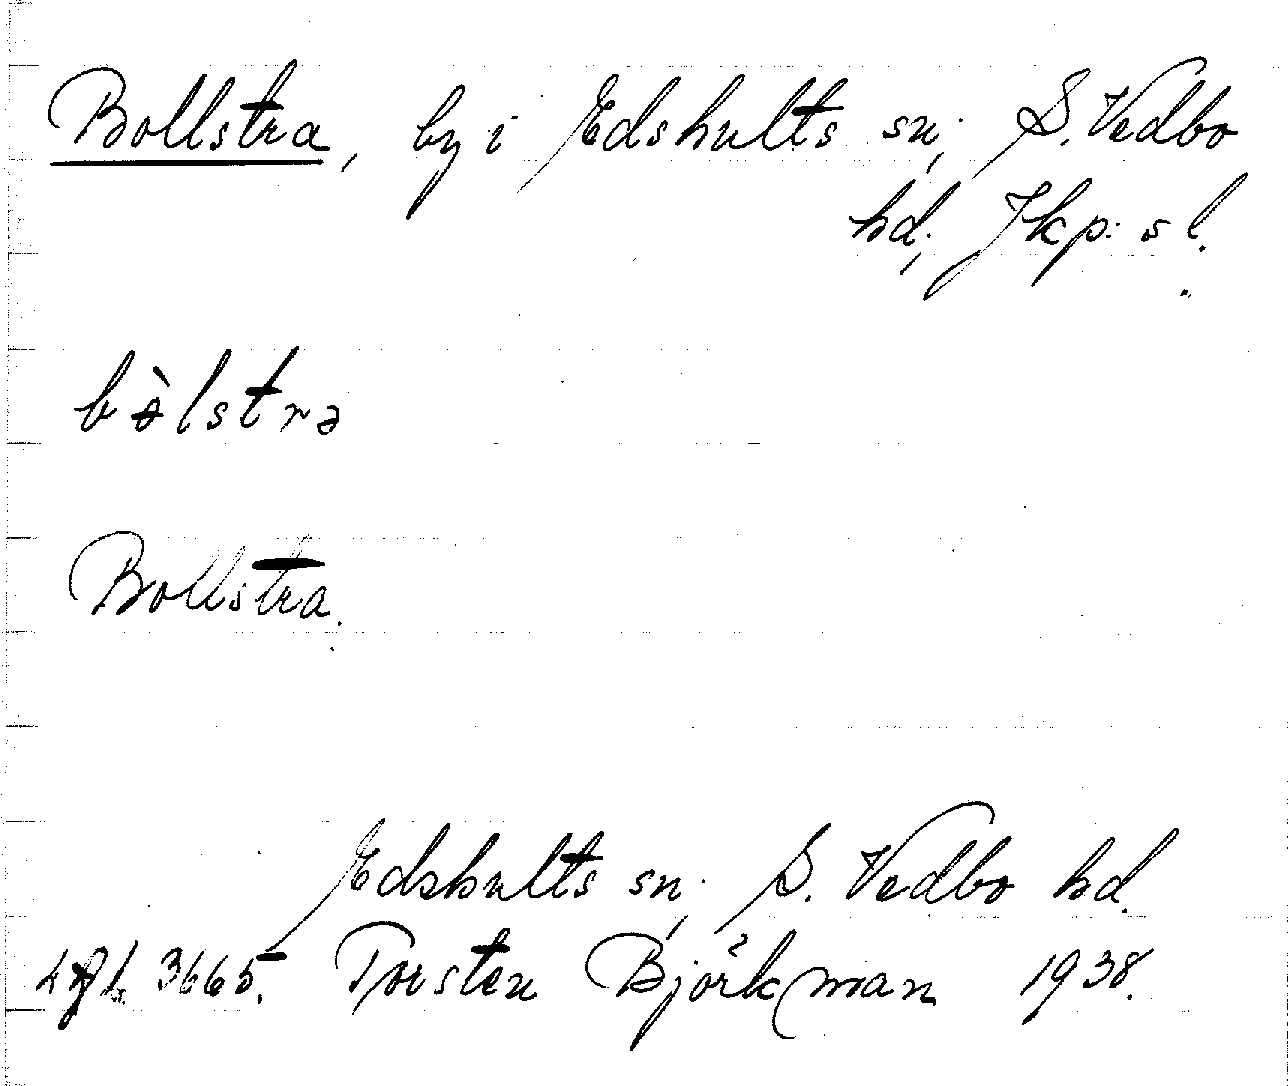 Bollstra, by i Edshults sn, S. Vedbo
hd, Jkp: s l.
bɵ̀lstrə
Bollstra.
Edshults sn, S. Vedbo hd.
3665. Torsten Björkman 1938.